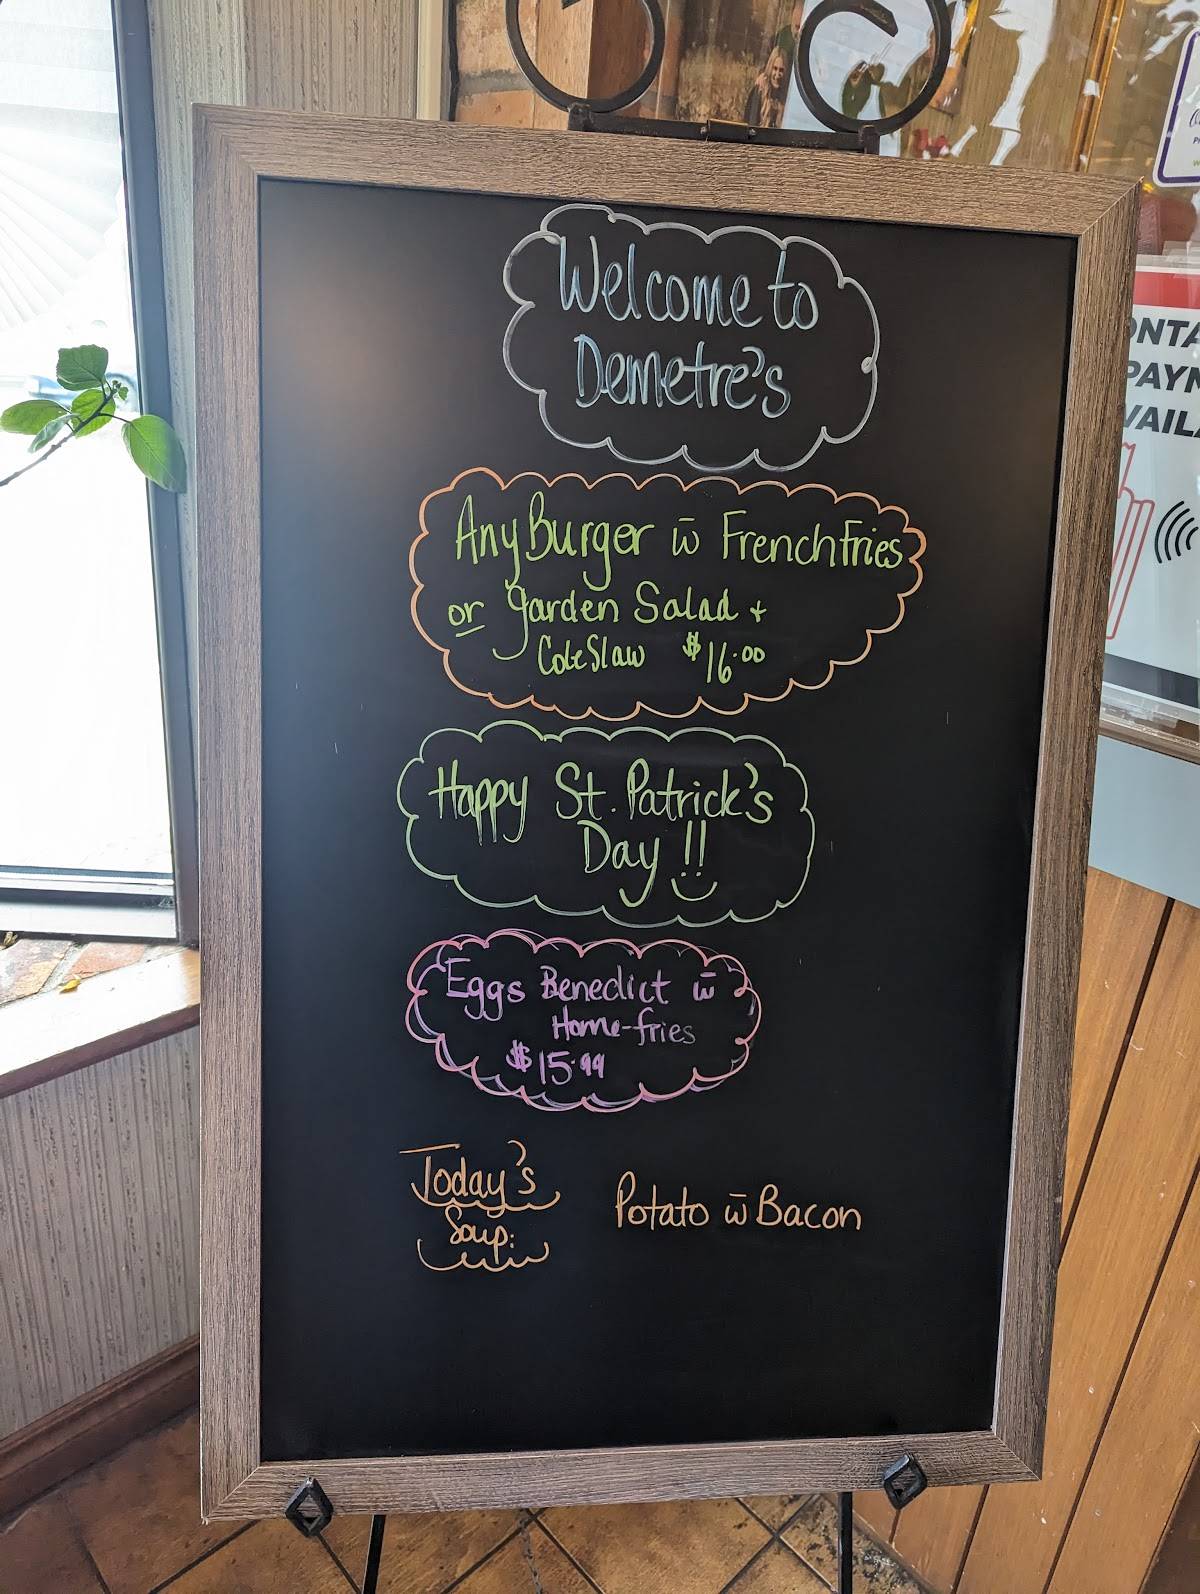 Welcome to
Demetre's
Any Burger w̄ French Fries
or Garden Salad +
Coleslaw $16.00
Happy St. Patrick's
Day !!
Eggs Benedict w̄
Home-fries
$15.99
Today's
Soup:
Potato w̄ Bacon